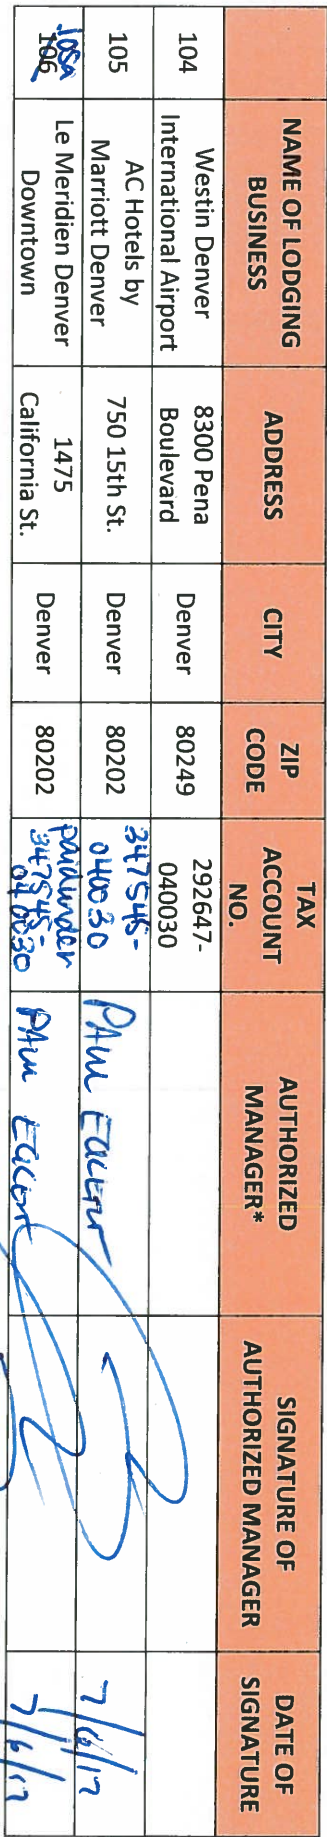 NAME OF LODGING BUSINESS ADDRESS CITY ZIP CODE TAX ACCOUNT NO. AUTHORIZED MANAGER* SIGNATURE OF AUTHORIZED MANAGER DATE OF SIGNATURE
104 Westin Denver International Airport 8300 Pena Boulevard Denver 80249 292647-040030
105 AC Hotels by Marriott Denver 750 15th St. Denver 80202 347545-040030 Paul 7/6/17
105a 106 Le Meridien Denver Downtown 1475 California St. Denver 80202 paid under 347545-040030 Paul 7/6/17